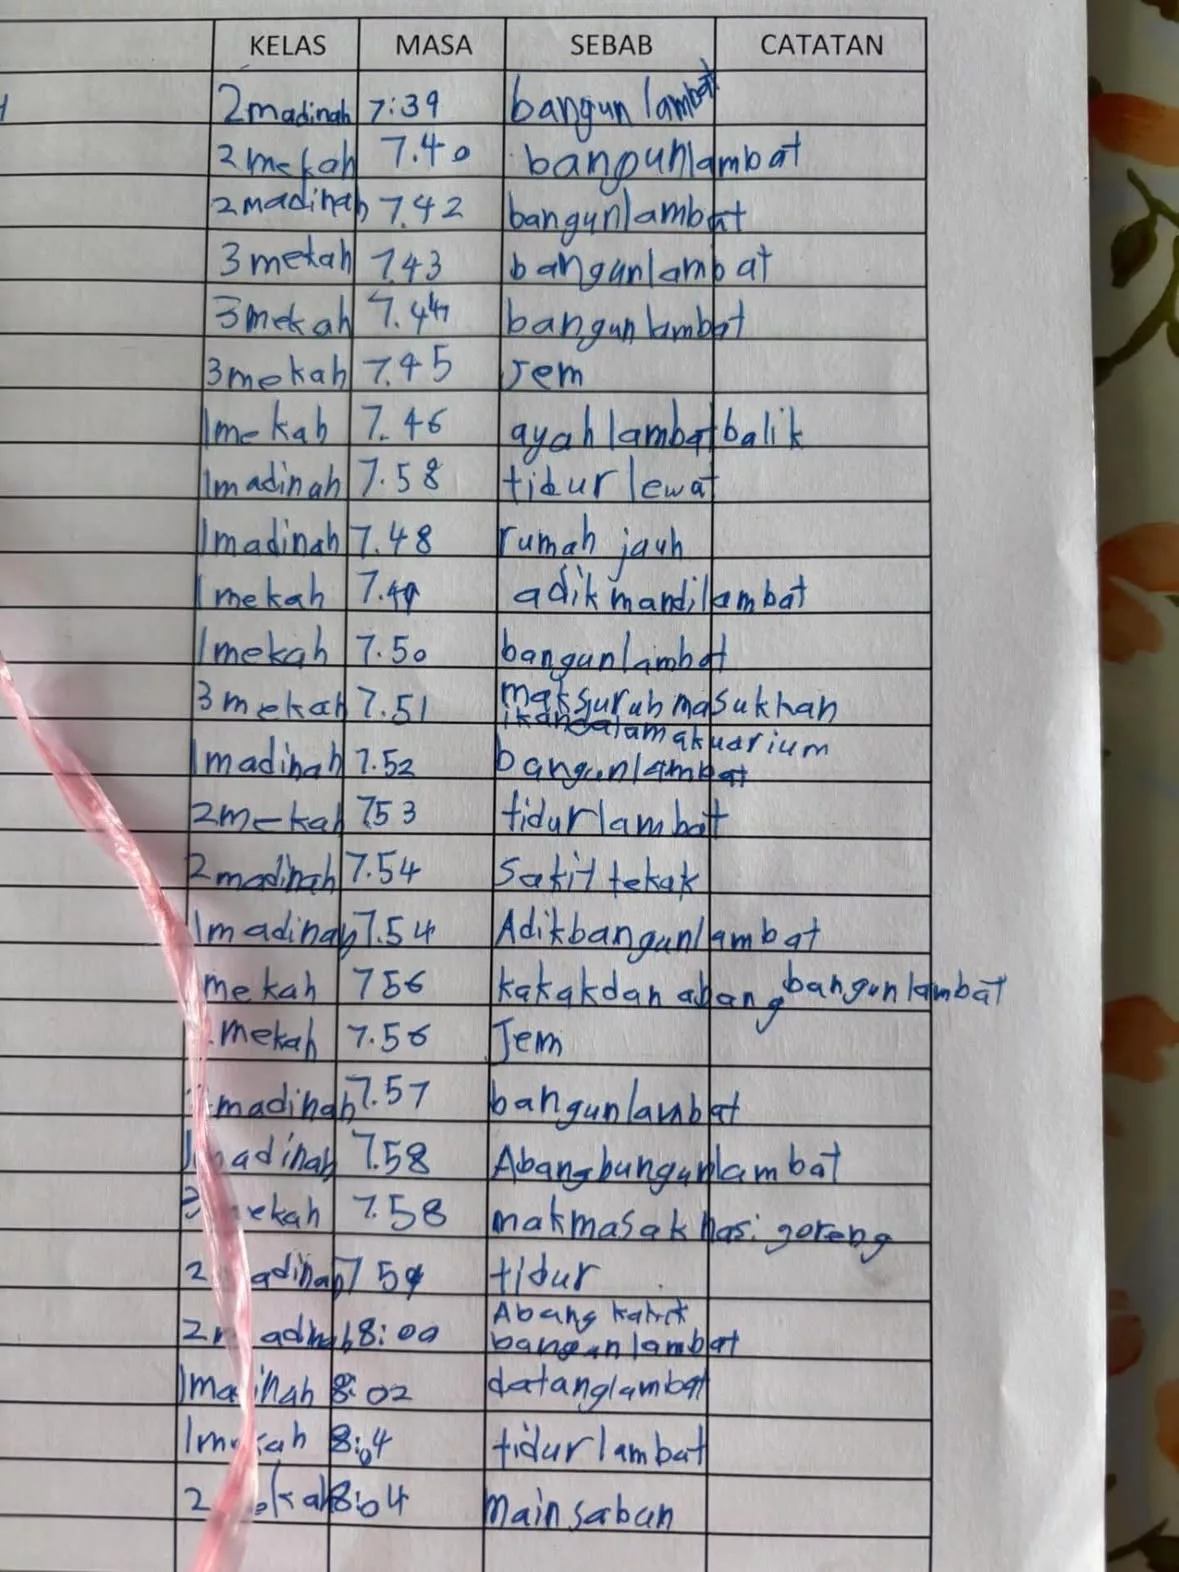 KELAS MASA SEBAB CATATAN
2madinah 7:39 bangun lambat
2mekah 7.40 bangunlambat
2madinah 7.42 bangunlambat
3mekah 7.43 bangunlambat
3mekah 7.44 bangun lambat
3mekah 7.45 Jem
1mekah 7.46 ayah lambat balik
1madinah 7.58 tidur lewat
1madinah 7.48 rumah jauh
1mekah 7.49 adik mandi lambat
1mekah 7.50 bangunlambat
3mekah 7.51 mak suruh masukhan
ikan dalam akuarium
1madinah 7.52 bangunlambat
2mekah 753 tidur lambat
2madinah 7.54 Sakit tekak
1madinah 7.54 Adik bangun lambat
mekah 756 kakak dan abang bangun lambat
mekah 7.56 Jem
madinah 7.57 bangunlambat
adinah 7.58 Abang bungun lambat
3 ekah 7.58 mak masak nasi goreng
2 adinah 7 59 tidur
Abang kakak
2 adinah 8:00 bangun lambat
1ma inah 8:02 datang lambat
1m kah 8:04 tidur lambat
2 kah 8:04 main sabun